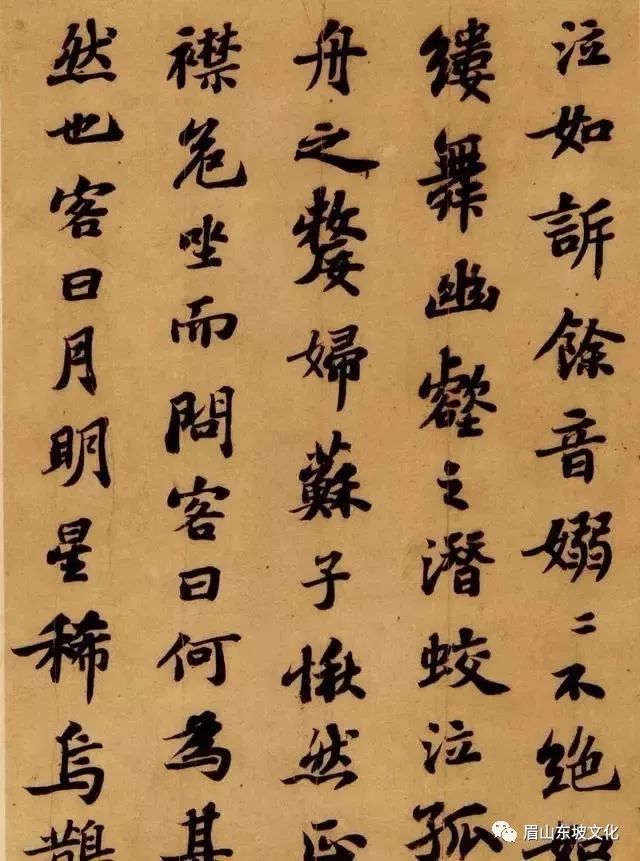 泣如訴餘音嫋二不絕如
縷舞幽壑之潛蛟泣孤
舟之嫠婦蘇子愀然正
襟危坐而問客曰何為其
然也客曰月明星稀烏鵲
眉山东坡文化